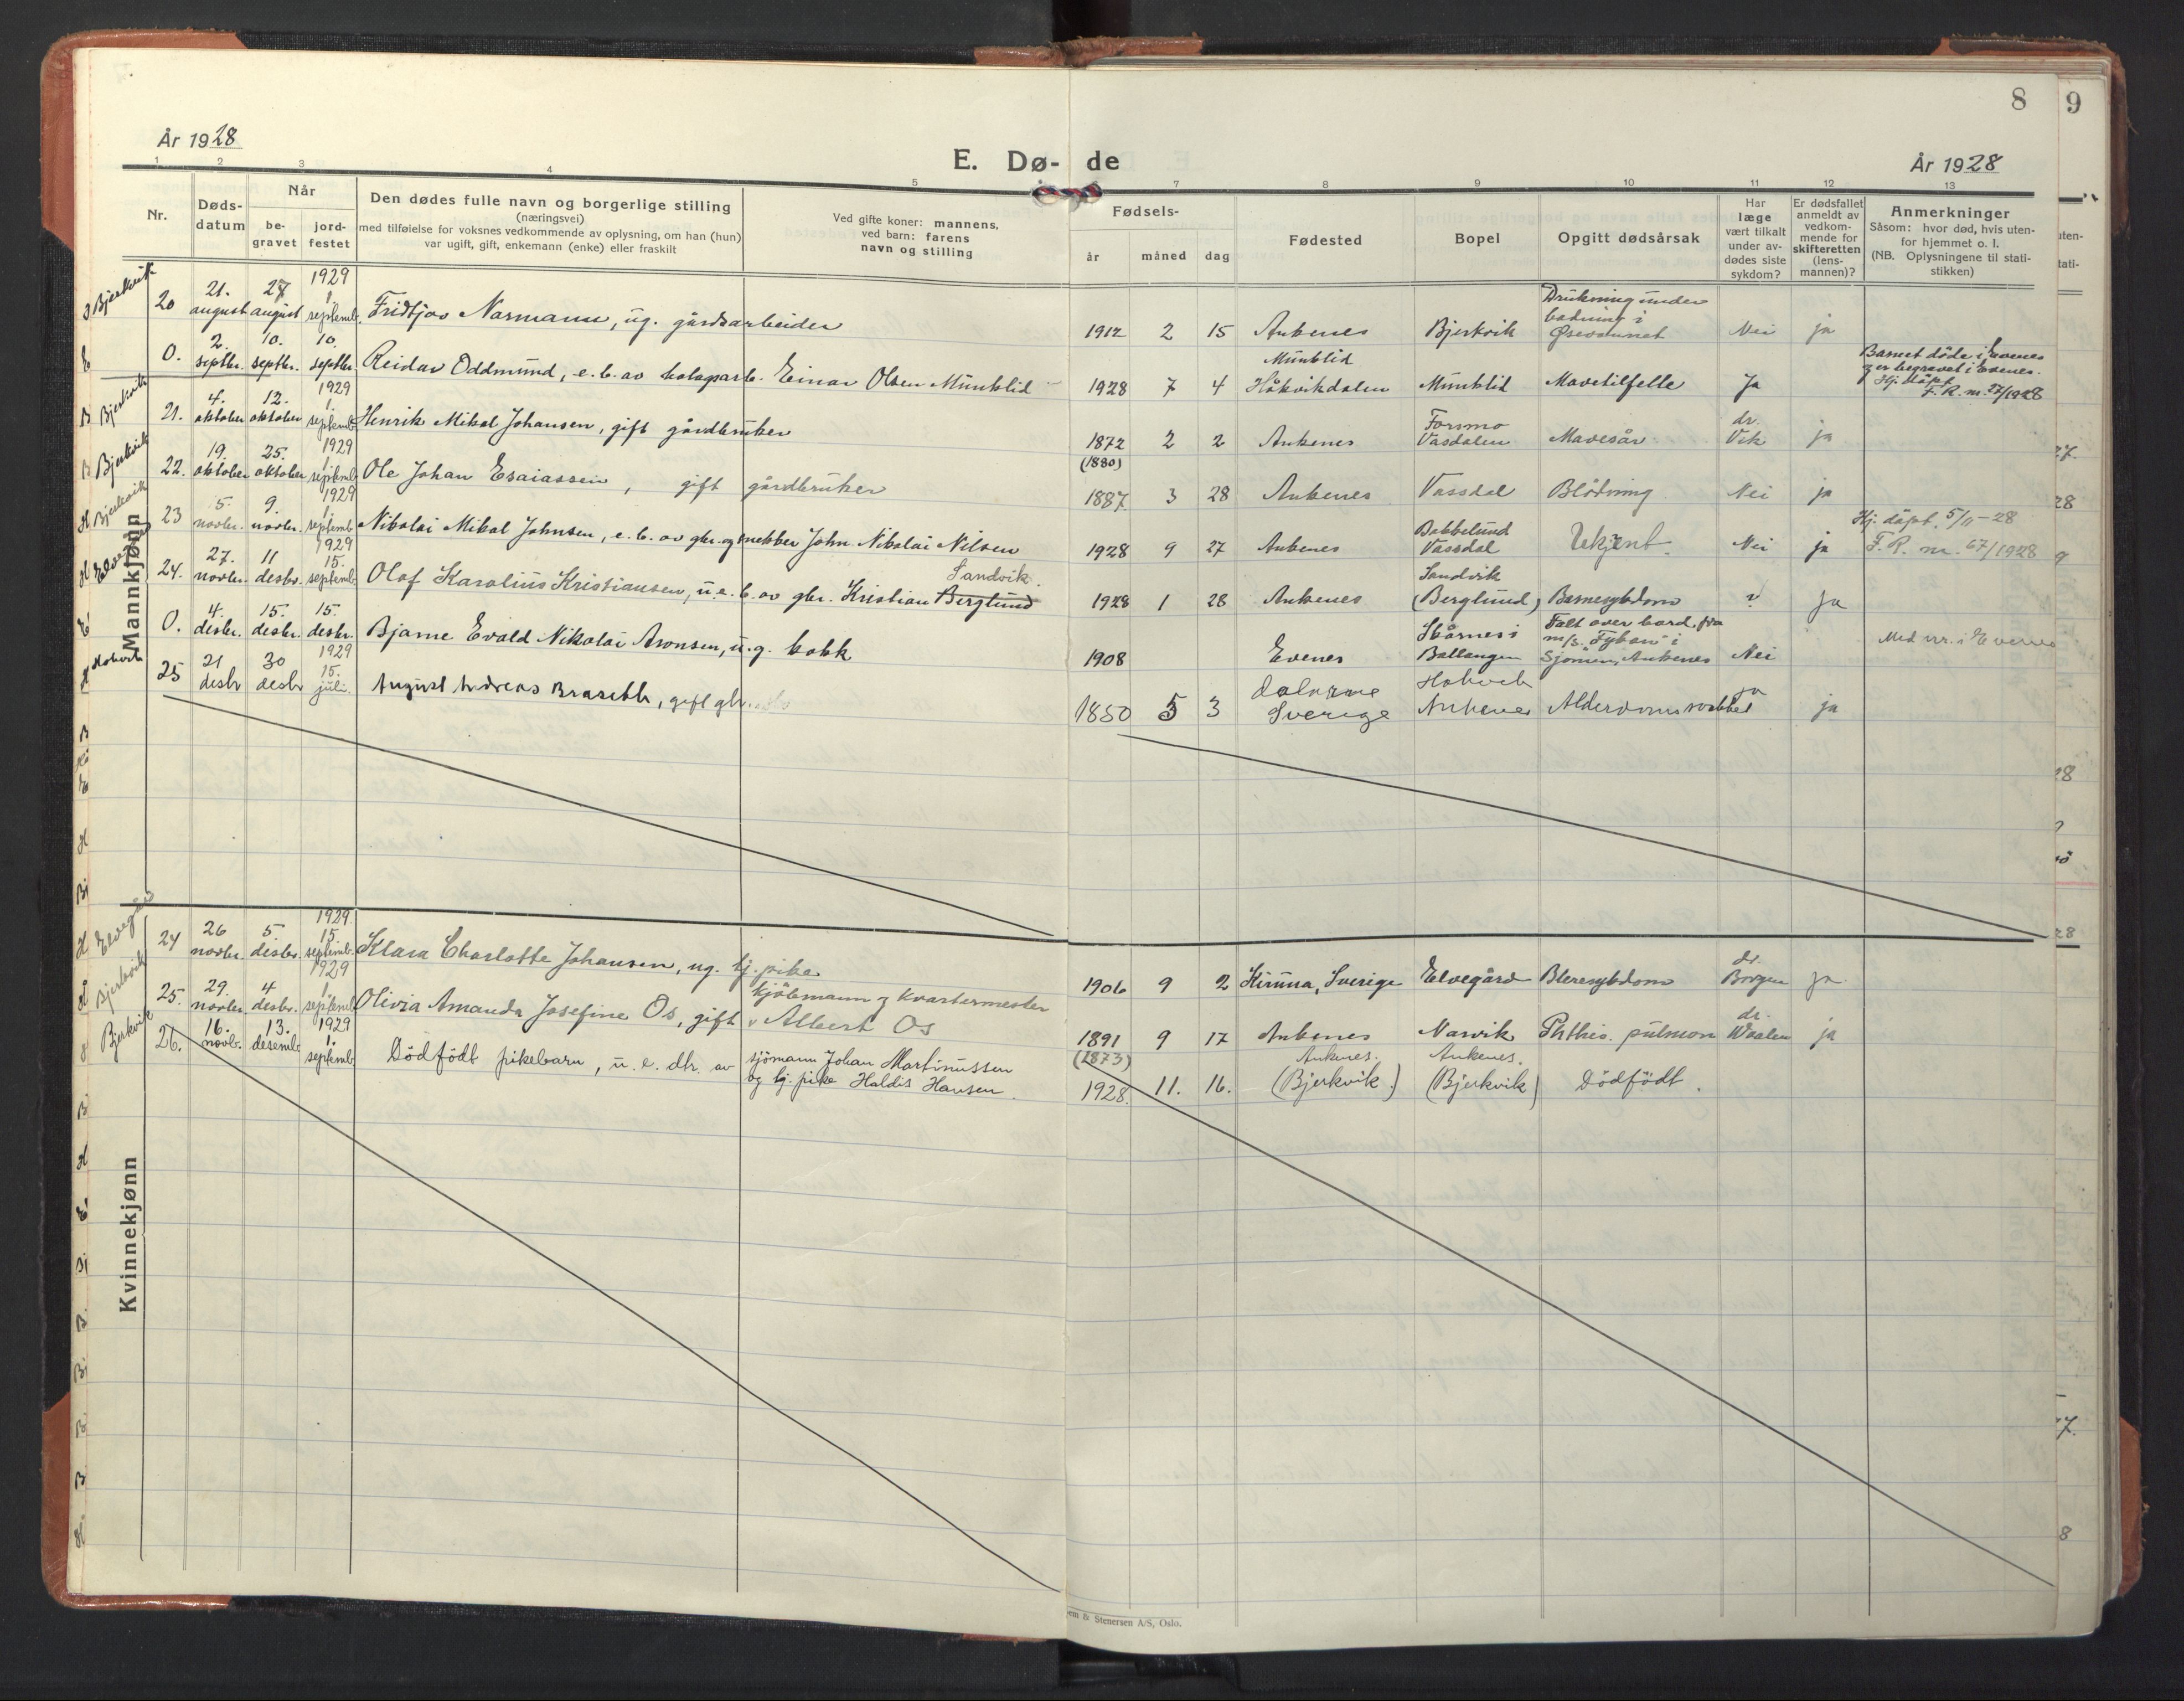 8
9
År 1928
E. Dø- de
År 1928
1 2 3 4 5 7 8 9 10 11 12 13
Nr.
Døds-
datum
Når
be-
gravet
jord-
festet
Den dødes fulle navn og borgerlige stilling
(næringsvei)
med tilføielse for voksnes vedkommende av oplysning, om han (hun)
var ugift, gift, enkemann (enke) eller fraskilt
Ved gifte koner: mannens,
ved barn: farens
navn og stilling
Fødsels-
år måned dag
Fødested
Bopel
Opgitt dødsårsak
Har
læge
vært tilkalt
under av-
dødes siste
sykdom?
Er dødsfallet
anmeldt av
vedkom-
mende for
skifteretten
(lens-
mannen)?
Anmerkninger
Såsom: hvor død, hvis uten-
for hjemmet o. l.
(NB. Oplysningene til stati-
stikken)
Mannkjønn
Bjerkvik
20 21. august 27 august 1929 1 septemb. Fridtjov Normann, ug. gårdsarbeider
1912 2 15 Ankenes Bjerkvik Drukning under
badning i
Øsevannet Nei ja
0. 2. septbr. 10. septbr. 10. septbr. Reidar Oddmund, e. b. av Einar Olsen Munklid
1928 7 4 Munklid
Håkvikdalen Munklid Mavetilfelle Ja
Barnet døde i Evenes
og er begravet i Evenes.
Hj. døpt
F. R. nr. 27/1928
Bjerkvik
21. 4. oktober 12. oktober 1929 1. septemb. Henrik Mikal Johansen, gift gårdbruker
1872 2 2 Ankenes Forsmo
Vasdalen Mavesår dr.
Vik ja
(1880)
Bjerkvik
22. 19. oktober 25. oktober 1929 1. septemb. Ole Johan Esaiassen, gift gårdbruker
1887. 3 28 Ankenes Vassdal Blødning Nei ja
Bjerkvik
23 5. novbr. 9. novbr. 1929 1. septemb. Nikolai Mikal Johnsen, e. b. av gbr. og snekker John Nikolai Nilsen
1928 9 27 Ankenes Bakkelund
Vassdal Ukjent. Nei ja
Hj. døpt. 5/11-28
F. R. nr. 67/1928
24. 27. novbr. 11 desbr. 1929 15. septemb. Olaf Karolius Kristiansen, u. e. b. av gbr. Kristian Berglund
Sandvik.
1928 1 28 Ankenes Sandvik
(Berglund) Barnesykdom ? ja
0. 4. desbr. 15. desbr. 15. desbr. Bjarne Evald Nikolai Aronsen, u. g. kokk
1908 Evenes Skårnes i
Ballangen Falt over bord fra
m/s. "Tyhan" i
Sjømen, Ankenes Nei
Med nr. i Evenes
Håkvik
25 21 desbr 30 desbr 1929 15. juli. August Andreas Brasekk, gift gbr.
1850 5 3 Dalarne
Sverige Håkvik
Ankenes Alderdomssvakhet ja ja
Kvinnekjønn
Elvegård
24 26 novbr. 5 desbr. 1929 15 septemb. Klara Charlotte Johansen, ug. tj. pike
1906 9 2 Kiruna, Sverige Elvegård Bleresykdom dr.
Borgen ja.
Bjerkvik
25. 29. novbr. 4 desbr. 1929 1. septemb. Olivia Amanda Josefine Os, gift
kjøbmann og kvartermester
Albert Os
1891 9 17 Ankenes Narvik Phthis. pulmon dr.
Waalen ja
(1873)
Bjerkvik
26. 16. novb. 13. desemb. 1929 1. septemb. Dødfødt pikebarn, u. e. dtr. av
sjømann Johan Martinussen
og tj. pike Haldis Hansen.
1928. 11. 16. Ankenes.
(Bjerkvik.) Ankenes.
(Bjerkvik) Dødfødt.
& Stenersen A/S, Oslo.